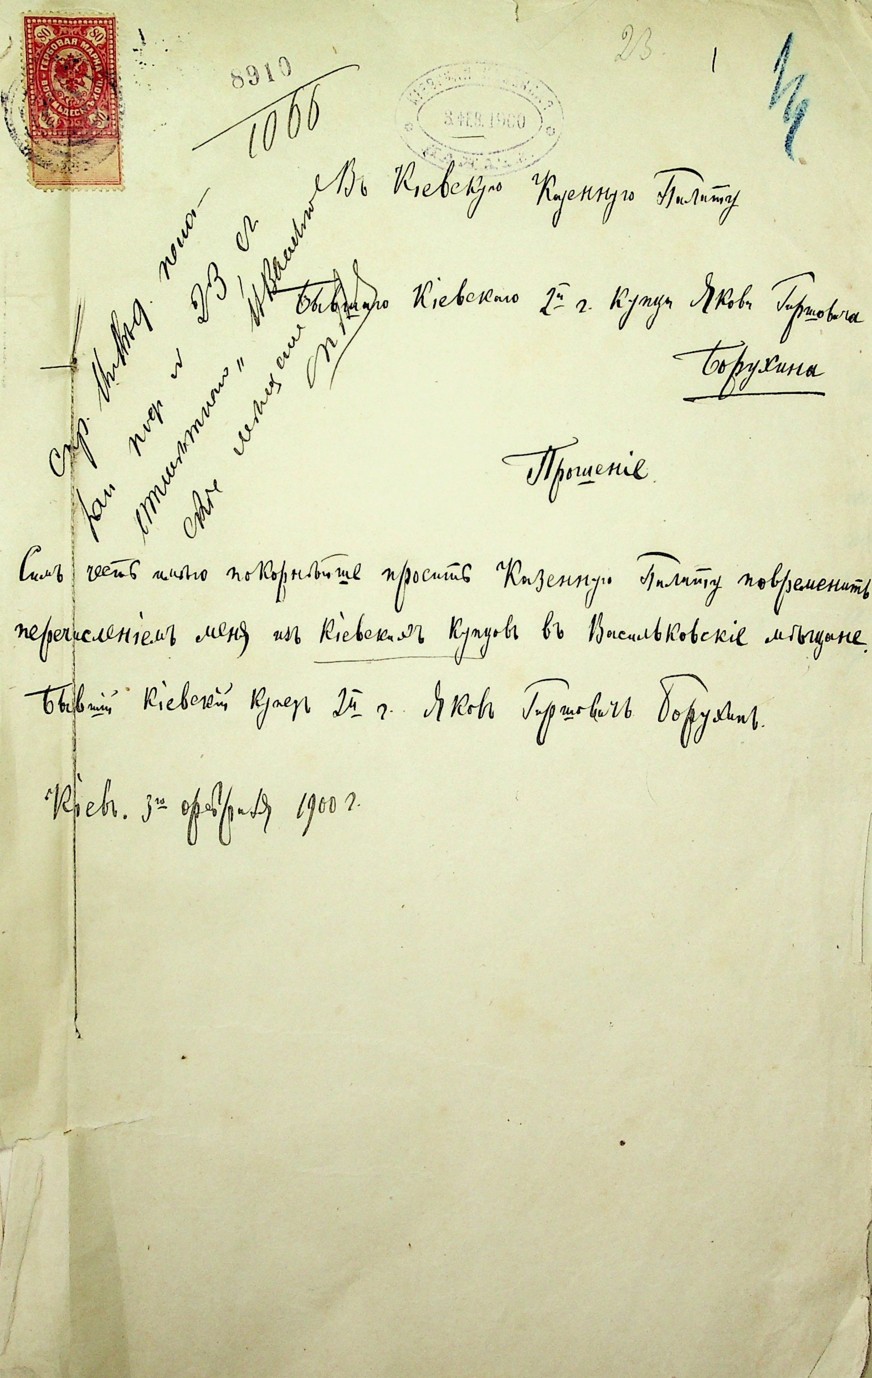 80 80
ГЕРБОВАЯ МАРКА
ВОСЕМЬДЕСЯТЪ КОП.
80 80
8910
1066
23
1
3 ФЕВ. 1900
Въ Кіевскую Казенную Палату
Бывшаго Кіевскаго 2й г. купца Якова Гиршовича
Борухина
Прошеніе.
Симъ честь имѣю покорнѣйше просить Казенную Палату повременить
перечисленіемъ меня изъ Кіевскихъ Купцовъ въ Васильковскіе мѣщане.
Бывшій Кіевскій Купецъ 2й г. Яковъ Гиршовичъ Борухинъ.
Кіевъ. 3го февраля 1900 г.